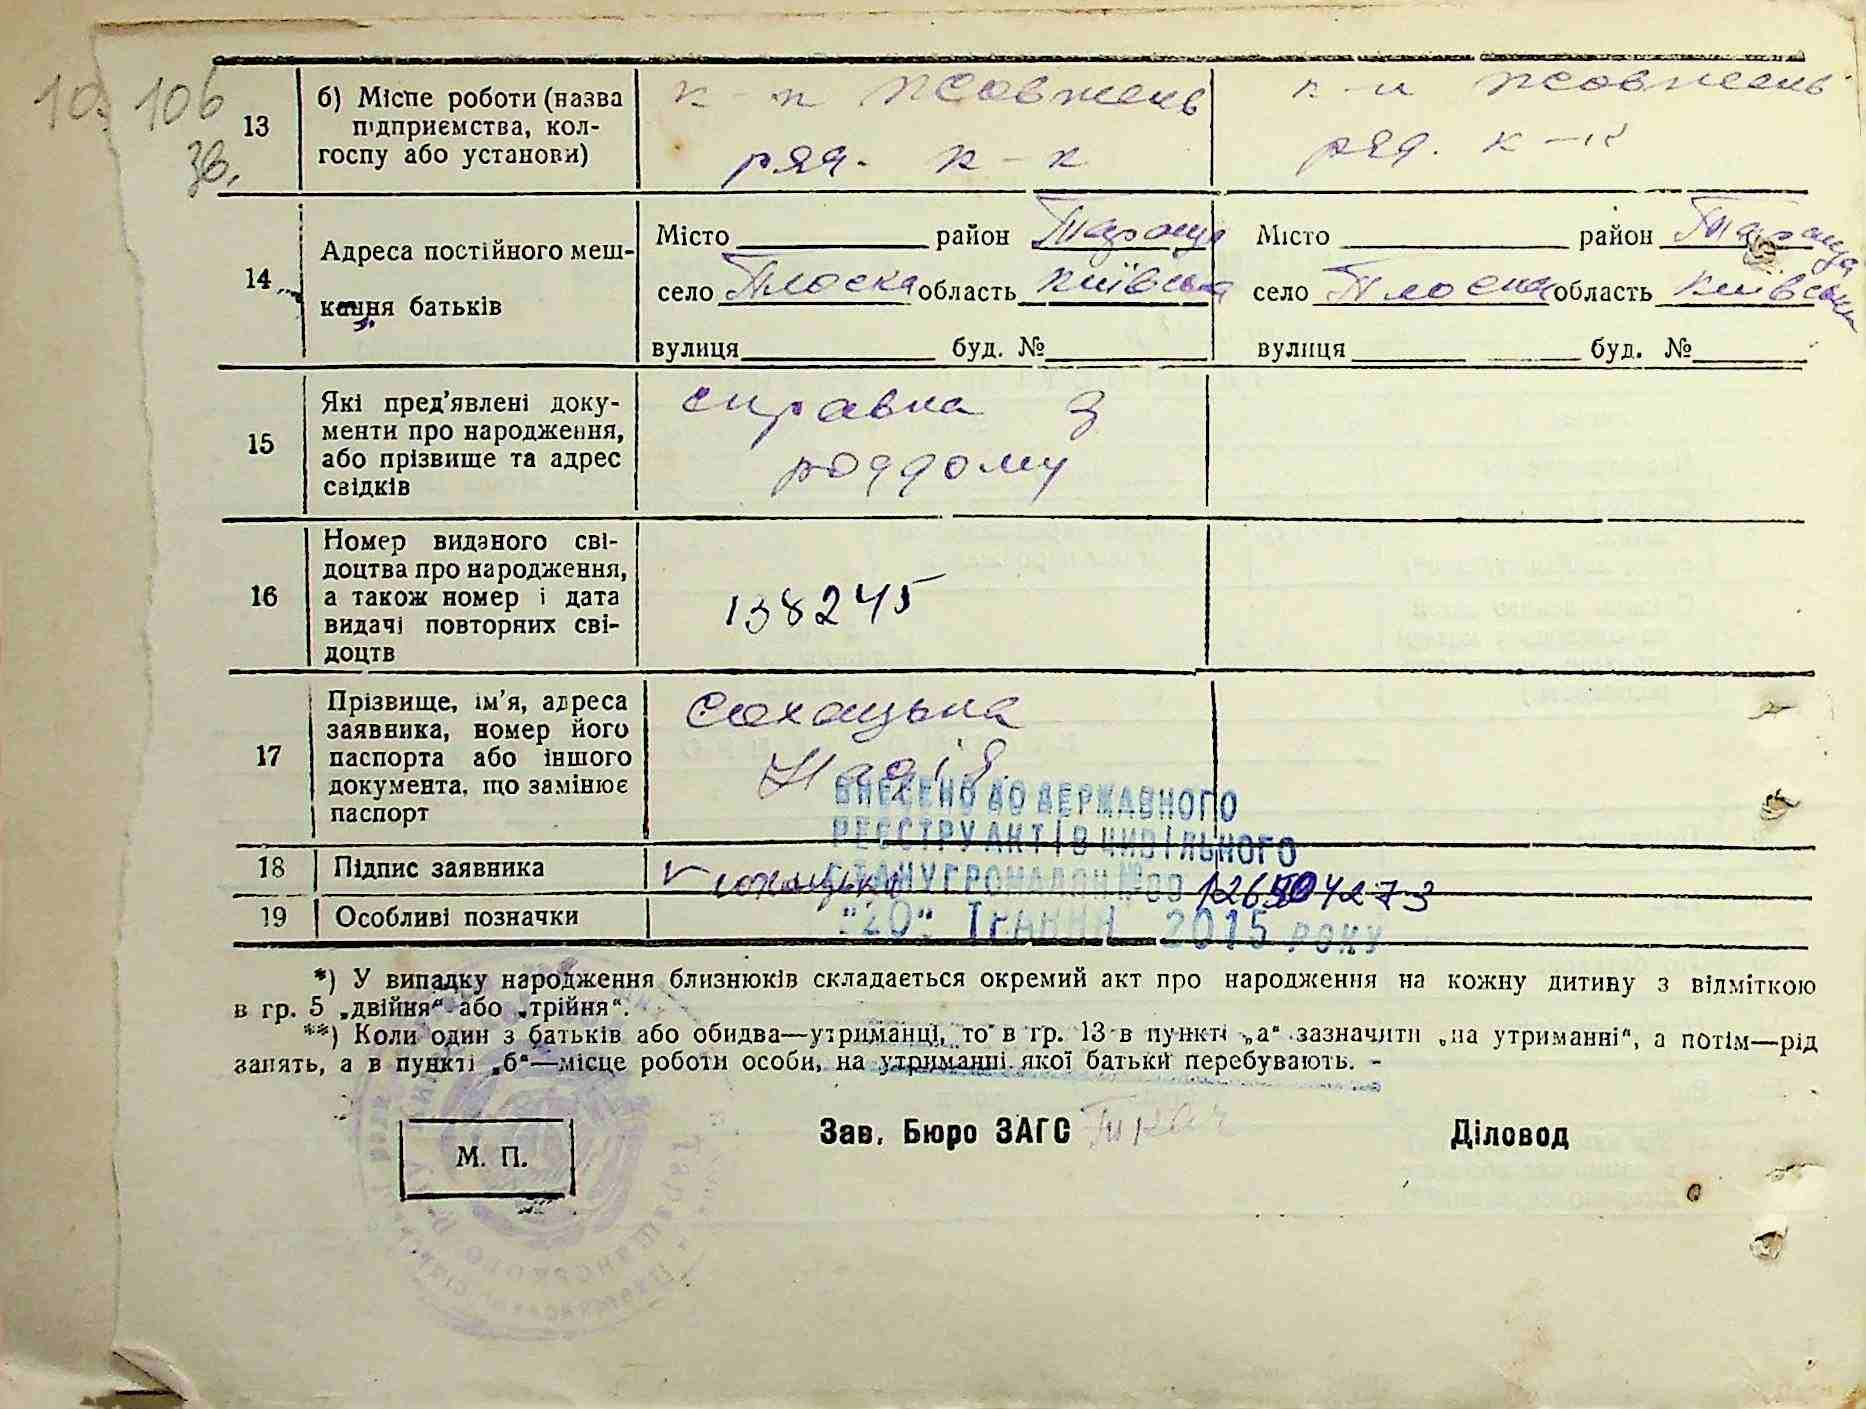 10. 106
зв.
13
б) Місце роботи (назва
підприємства, кол-
госпу або установи)
к-п Жовтень
ряд. к-к
к-п Жовтень
ряд. к-к
14
Адреса постійного меш-
кання батьків
Місто район Тараща
село Плоска область Київська
вулиця буд. №
Місто район Тараща
село Плоска область Київська
вулиця буд. №
15
Які пред’явлені доку-
менти про народження,
або прізвище та адрес
свідків
справка з
роддому
16
Номер виданого сві-
доцтва про народження,
а також номер і дата
видачі повторних сві-
доцтв
138245
17
Прізвище, ім’я, адреса
заявника, номер його
паспорта або іншого
документа, що замінює
паспорт
Сохацька
Надія
ВНЕСЕНО ДО ДЕРЖАВНОГО
РЕЄСТРУ АКТІВ ЦИВІЛЬНОГО
18 Підпис заявника
СТАНУ ГРОМАДЯН №00
19 Особливі позначки
"20" ТРАВНЯ 2015 РОКУ
*) У випадку народження близнюків складається окремий акт про народження на кожну дитину з відміткою
в гр. 5 „двійня“ або „трійня“.
**) Коли один з батьків або обидва—утриманці, то в гр. 13 в пункті „а“ зазначити „на утриманні“, а потім—рід
занять, а в пункті „б“—місце роботи особи, на утриманні якої батьки перебувають.
М. П.
Зав. Бюро ЗАГС
Діловод